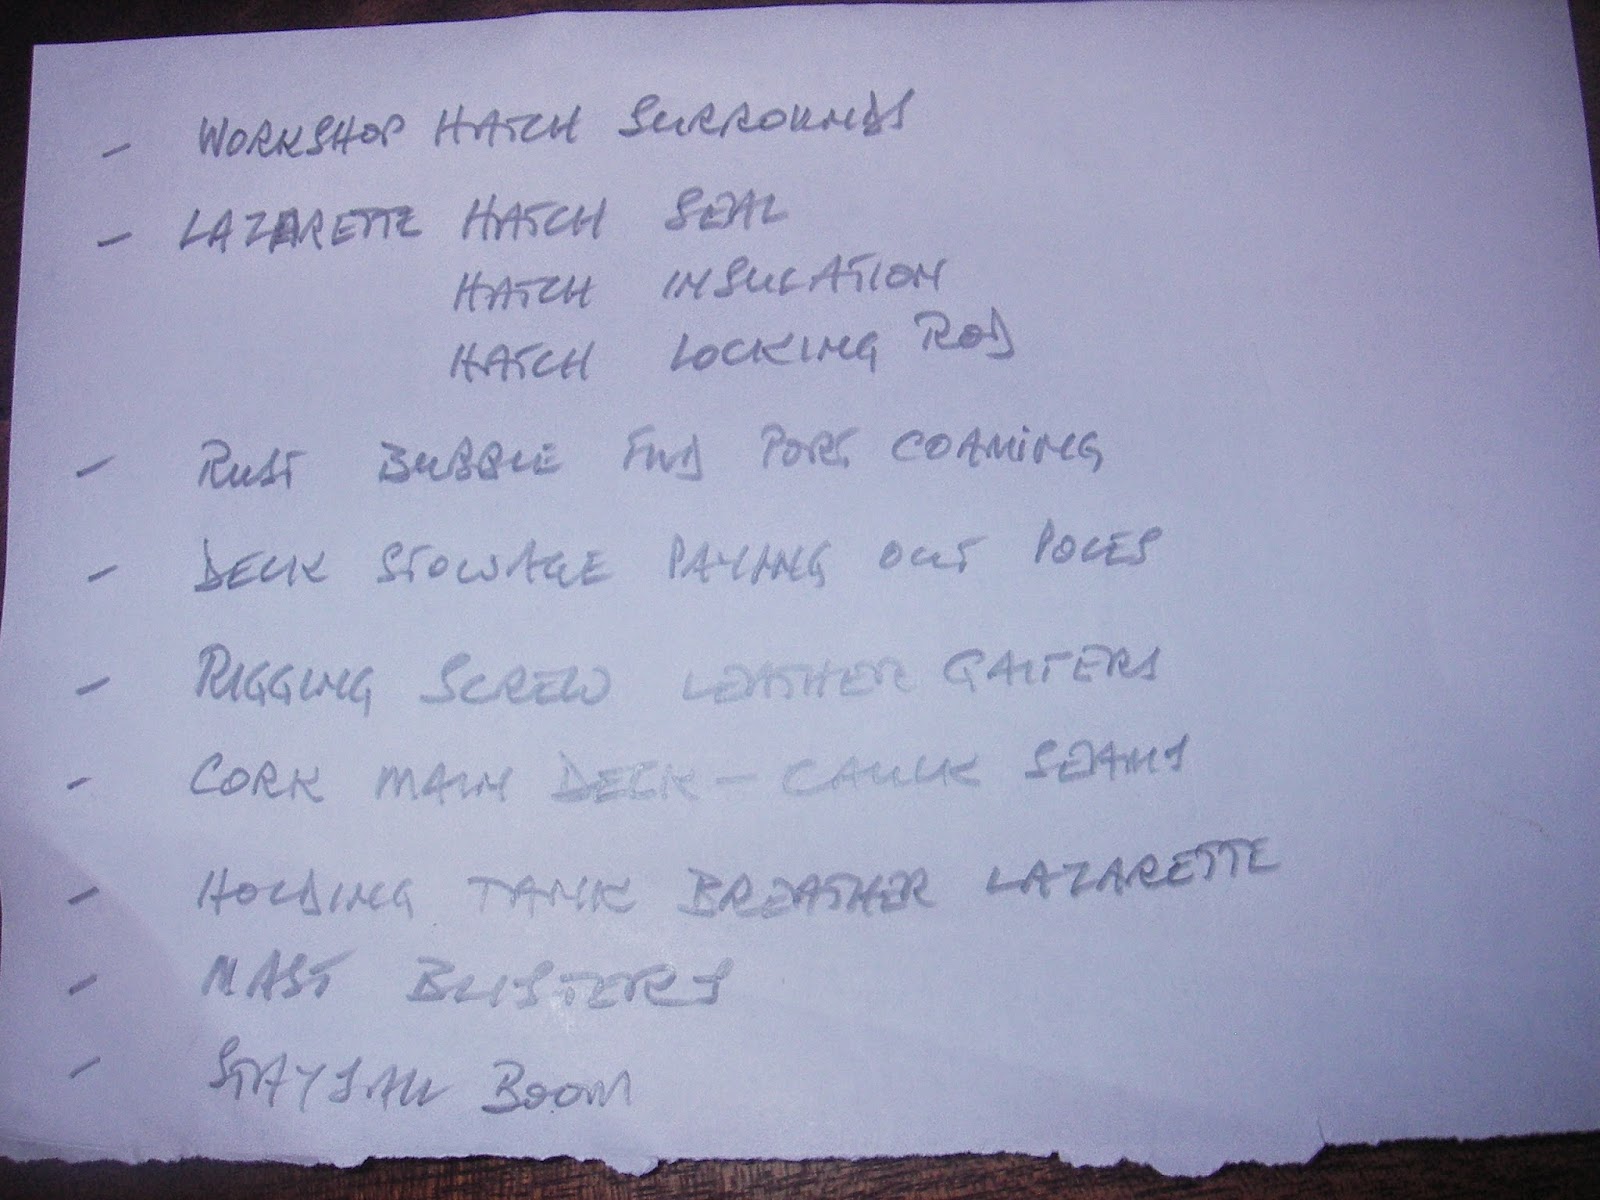 - WORKSHOP HATCH SURROUNDS
- LAZARETTE HATCH SEAL
HATCH INSULATION
HATCH LOCKING ROD
- RUST BUBBLE FWD PORT COAMING
- DECK STOWAGE PAYING OUT POLES
- RIGGING SCREW LEATHER GAITERS
- CORK MAIN DECK - CAULK SEAMS
- HOLDING TANK BREATHER LAZARETTE
- MAST BLISTERS
- STAYSAIL BOOM